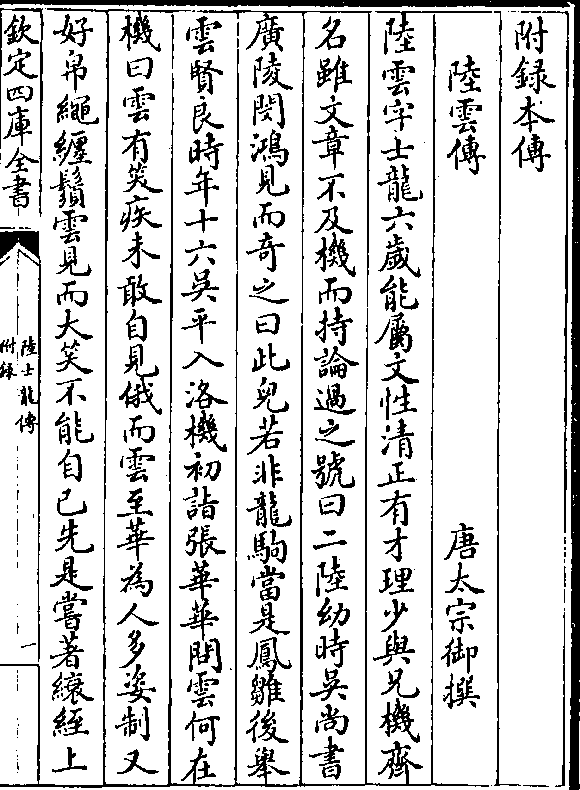 附録本傳
陸雲傳
唐太宗御撰
陸雲字士龍六歲能屬文性清正有才理少與兄機齊
名雖文章不及機而持論過之號曰二陸幼時吳尚書
廣陵閔鴻見而奇之曰此兒若非龍駒當是鳳雛後舉
雲賢良時年十六吳平入洛機初詣張華華問雲何在
機曰雲有笑疾未敢自見俄而雲至華為人多姿制又
好帛繩纏鬚雲見而大笑不能自已先是嘗著縗絰上
欽定四庫全書
陸士龍傳
附録
一